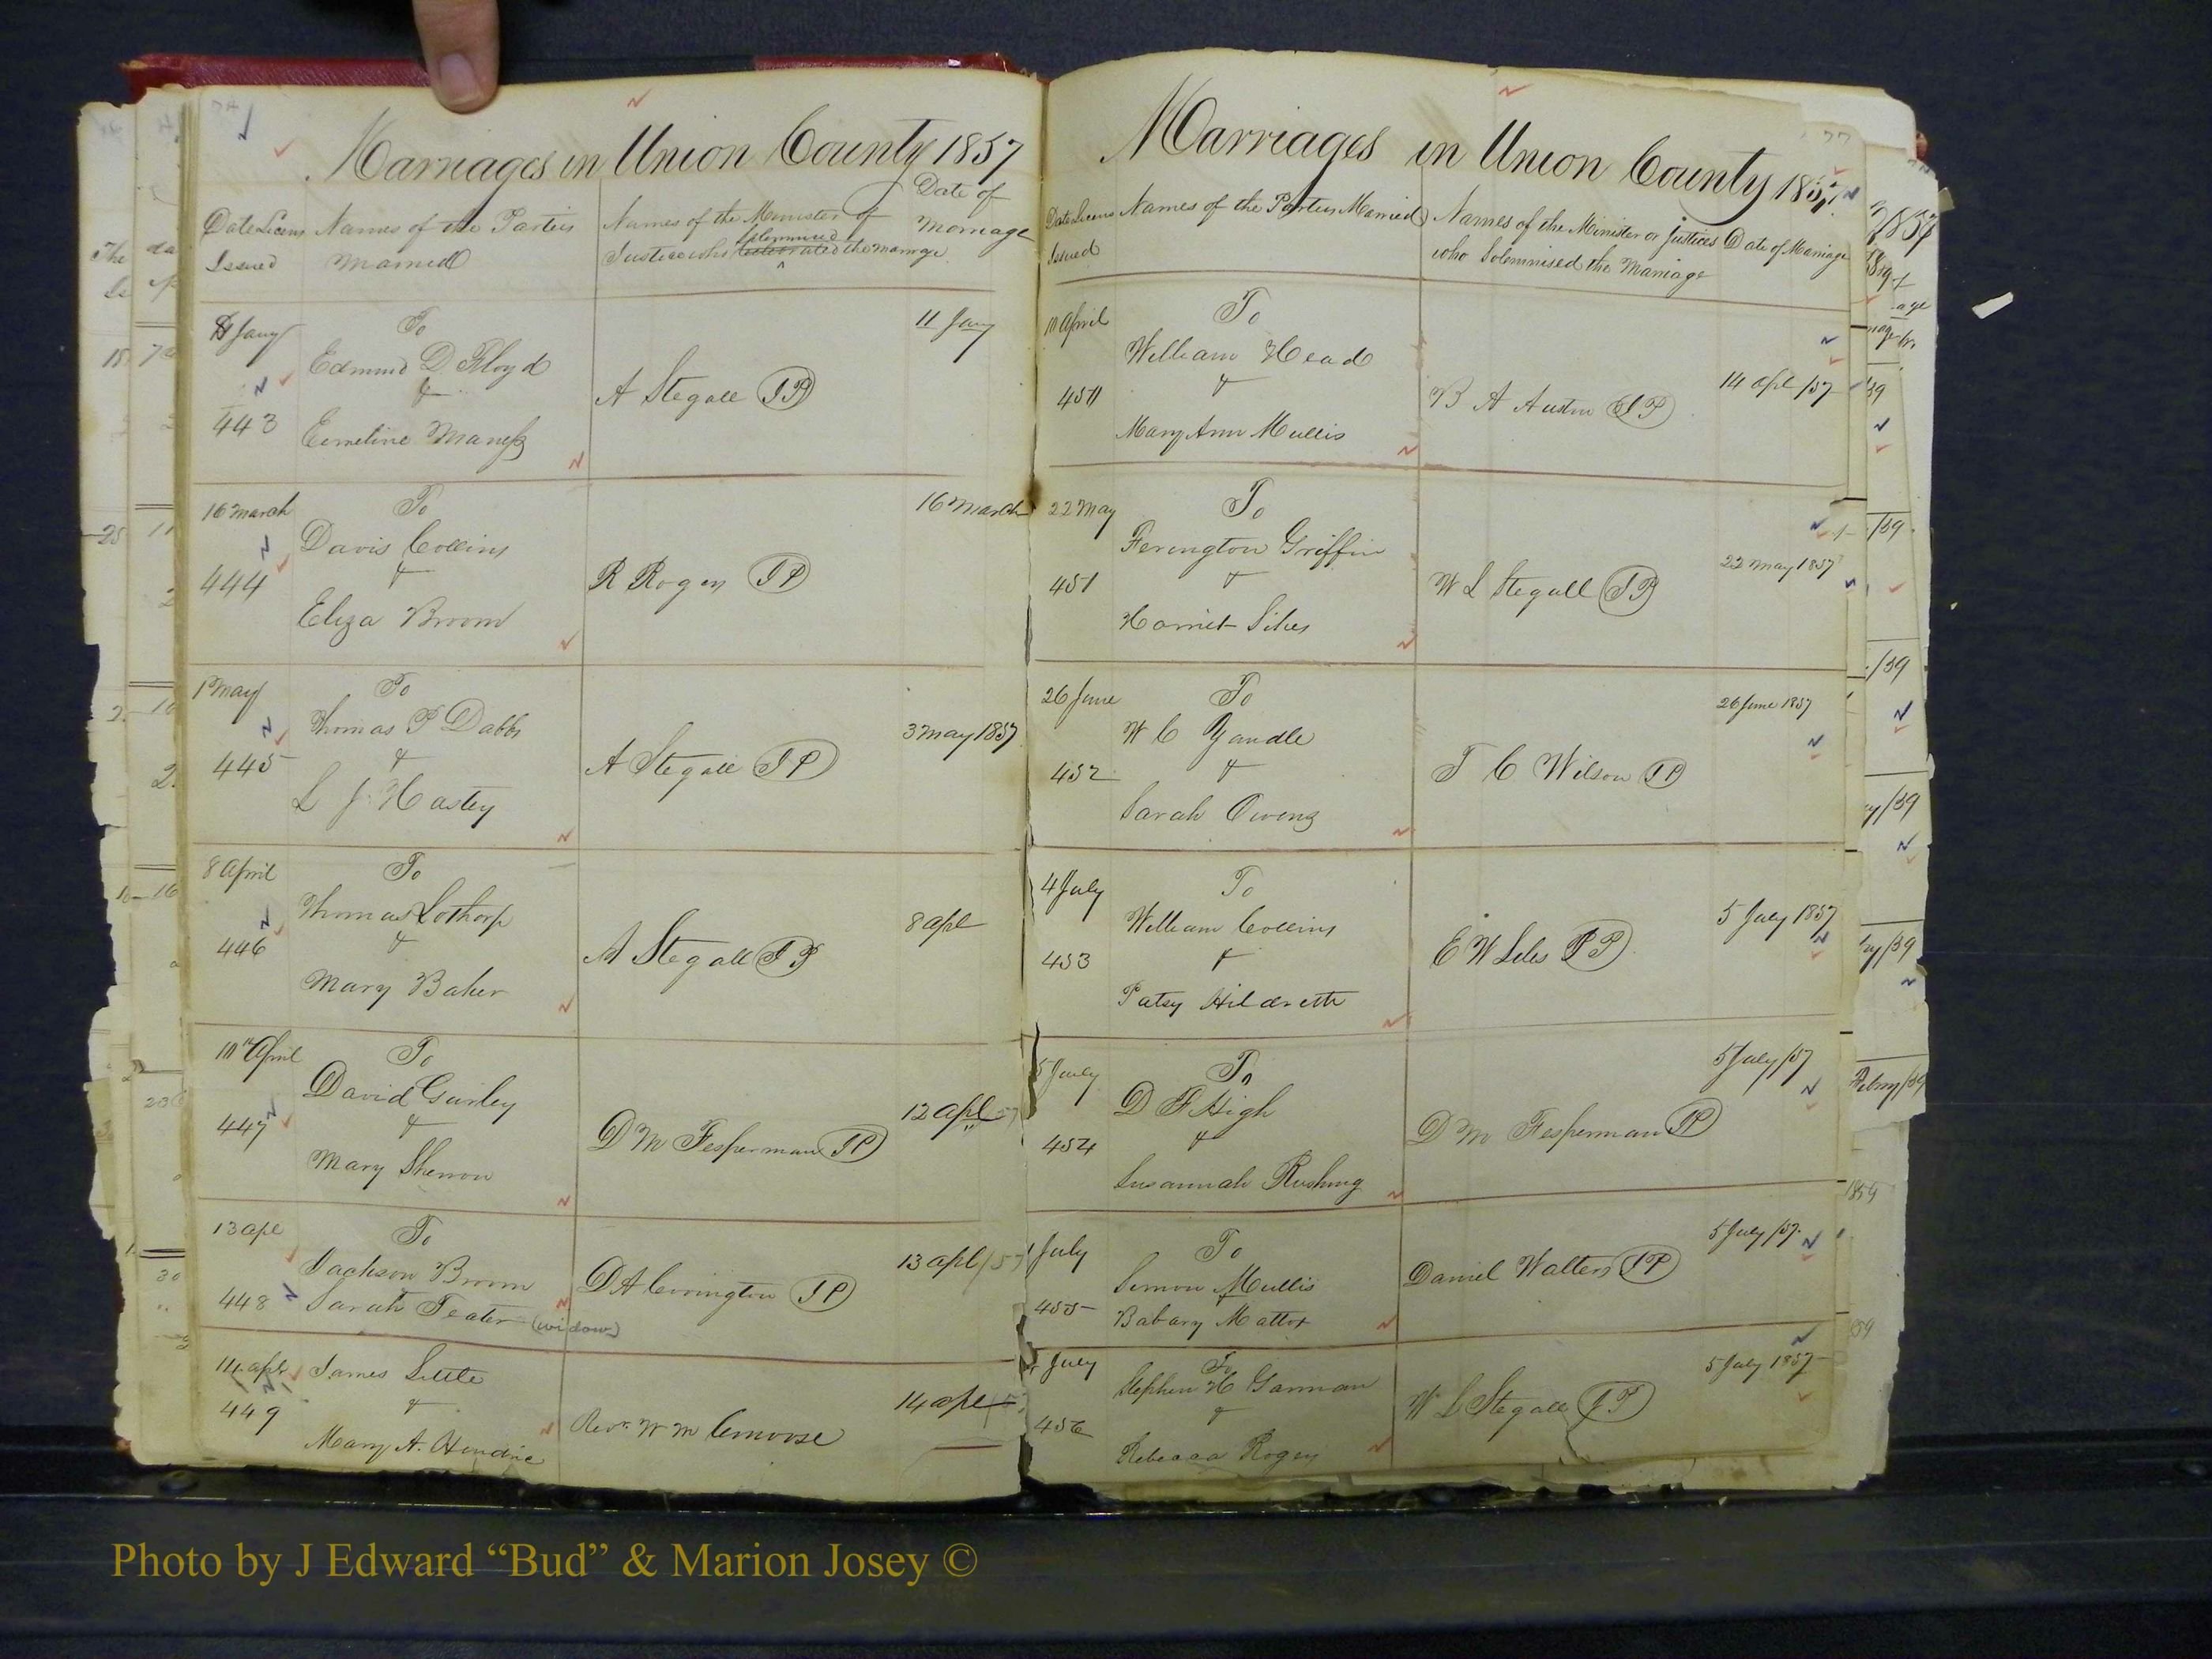 Marriages in Union County 1857
Date Licens Issued
Names of the Parties Married
Names of the Minister or Justice who solemnised the marriage
Date of Marriage
Jany
To
Edmund D Floyd
&
Emeline Maness
443
A Stegall JP
11 Jany
16 March
To
Davis Collins
&
Eliza Broom
444
R Rogers JP
16 March
1 May
To
Thomas P Dabbs
&
L J Hasty
445
A Stegall JP
3 May 1857
8 April
To
Thomas Lothorp
&
Mary Baker
446
A Stegall JP
8 apl
10th April
To
David Gurley
&
Mary
447
D M Fesperman JP
12 apl 57
13 apl
To
Jackson Broom
Sarah Teater (widow)
448
D A Covington JP
13 apl/57
14 apl
James Little
&
Mary A.
449
Revr. W M
14 apl
Marriages in Union County 1857
Date Licens Issued
Names of the Parties Married
Names of the Minister or Justices who Solemnised the Marriage
Date of Marriage
April
To
William Head
&
Mary Ann Mullis
450
B A Austin JP
14 apl /57
22 May
To
Ferington Griffin
&
Harriet Sikes
451
W L Stegall JP
22 May 1857
26 June
To
W C Yandle
&
Sarah Owens
452
T C Wilson JP
26 June 1857
4 July
To
William Collins
&
Patsy Hildreth
453
E W Liles JP
5 July 1857
5 July
To
D F High
&
Susannah Rushing
454
D M Fesperman JP
5 July/57
July
To
Simon Mullis
&
Babary Mattox
455
Daniel Walters JP
5 July/57
July
To
Stephen H Garman
&
Rebecca Rogers
456
W L Stegall JP
5 July 1857
Photo by J Edward “Bud” & Marion Josey ©